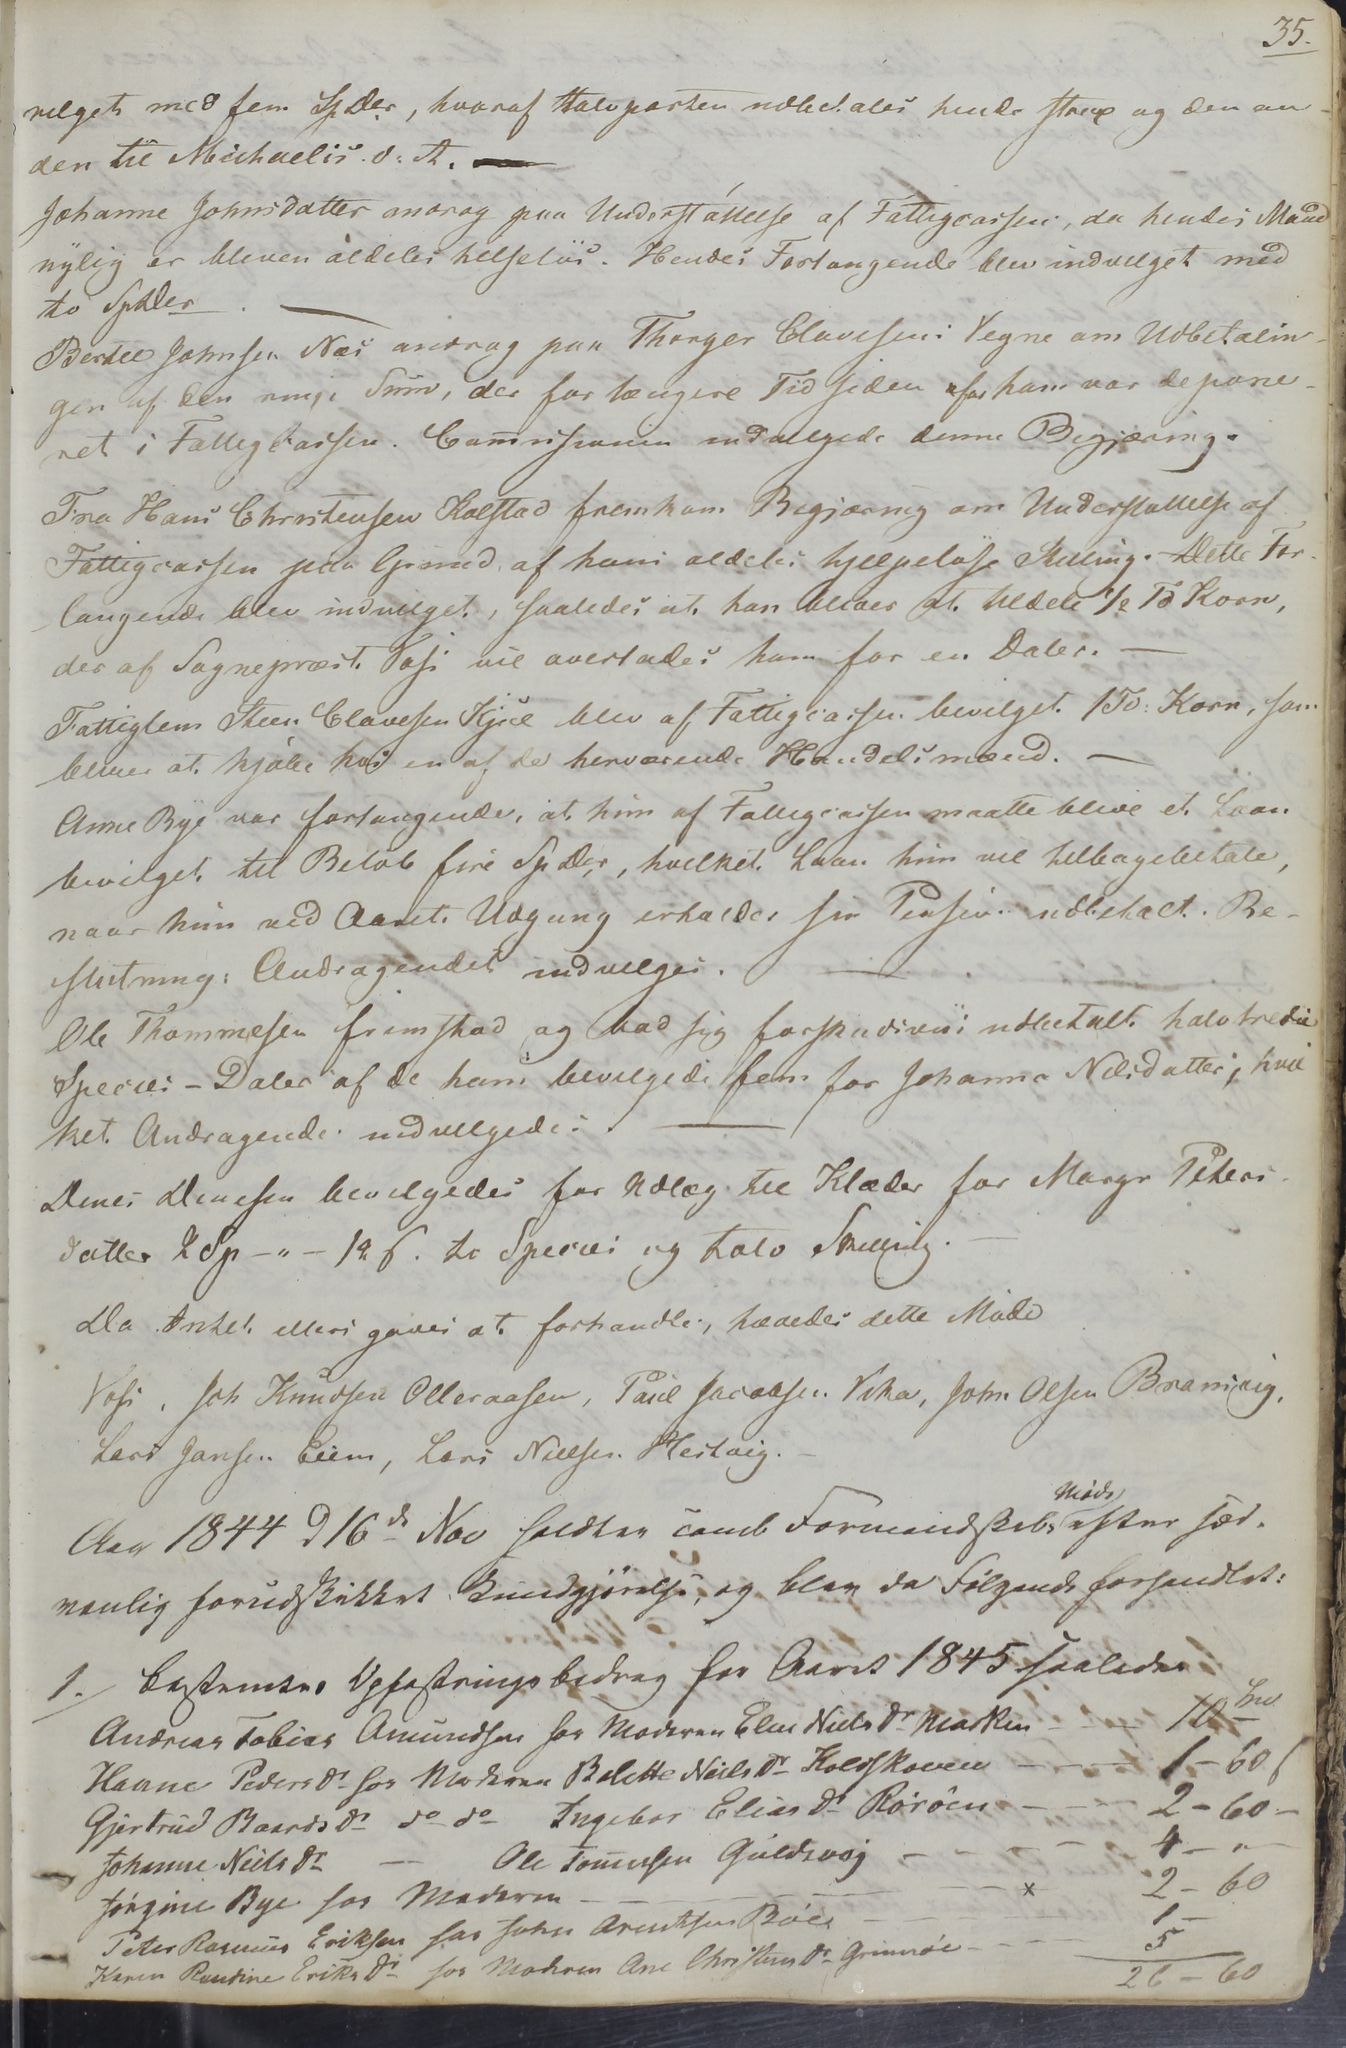 35.
vilget med fem Spdlr, hvoraf Halvparten udbetales hende strax og den an-
den til Michaelis d: A.
Johanne Johnsdatter androg paa Understøttelse af Fattigcassen, da hendes Mand
nylig er bleven aldeles helseløs. Hendes Forlangende blev indvilget med
to Spdler.
Bertel Johnsen Næs androg paa Thorger Clavesens Vegne om Udbetalin-
gen af den Sum, der for længere Tid siden for ham var depone-
ret i Fattigcassen. Commissionen indvilgede denne Begjæring.
Fra Hans Christensen Kolstad fremkom Begjæring om Understøttelse af
Fattigcassen paa Grund af hans aldeles hjelpeløse Stilling. Dette For-
langende blev indvilget, saaledes at han bliver at tildele 1/2 Td Korn,
der af Sognepræst Vosz vil overlades ham for en Daler.
Fattiglem Steen Clavesen blev af Fattigcassen bevilget 1 Td: Korn, som
bliver at kjøbe hos en af de herværende Handelsmænd.
Anne Bye var forlangende, at hun af Fattigcassen maatte blive et Laan
bevilget til Beløb fire Spdlr, hvilket Laan hun vil tilbagebetale,
naar hun ved Aarets Udgang erholder sin Pension udbetalt. Be-
slutning: Andragendet indvilges.
Ole Thommesen fremstod og bad sig forskudsviis udbetalt halvtredie
Species-Daler af de ham bevilgede fem for Johanna Nilsdatter, hvil
ket Andragende indvilgedes.
Dines Dinesen bevilgedes for Udlæg til Klæder for Margr Peters-
datter 2 Sp - " - 12 ß. to Species og tolv Skilling.
Da Intet ellers gaves at forhandle, hævedes dette Møde
Vosz, Joh Knudsen Olleraasen, Paul Jacobsen Vika, John Olsen Bramvig,
Lars Jansen Eiem, Lars Nielsen Hestvig.
Aar 1844 d 16de Nov holdtes comb Formandskabs Møde efter sæd-
vanlig forudskikket Kundgjørelse, og blev da Følgende forhandlet:
1./ Bestemtes Opfostringsbidrag for Aaret 1845 saaledes
Andreas Tobias Amundsen hos Moderen Elen Niels Dr Marken - - 10
Hanne Peders Dr hos Moderen Bolette Niels Dr Koldskoven - - 1 - 60 ß
Gjertrud Baards Dr do do Ingebor Elias Dr Röröen - - 2 - 60 -
Johanne Niels Dr - Ole Tommesen Guldvog - - 4 - " -
Jørgine Bye hos Moderen - - x 2 - 60
Peter Rasmus Eriksen hos John Arentsen Böe - - 1 -
Karen Randine Eriks Dr hos Moderen Ane Christens Dr Grinnöe - - 5
26 - 60